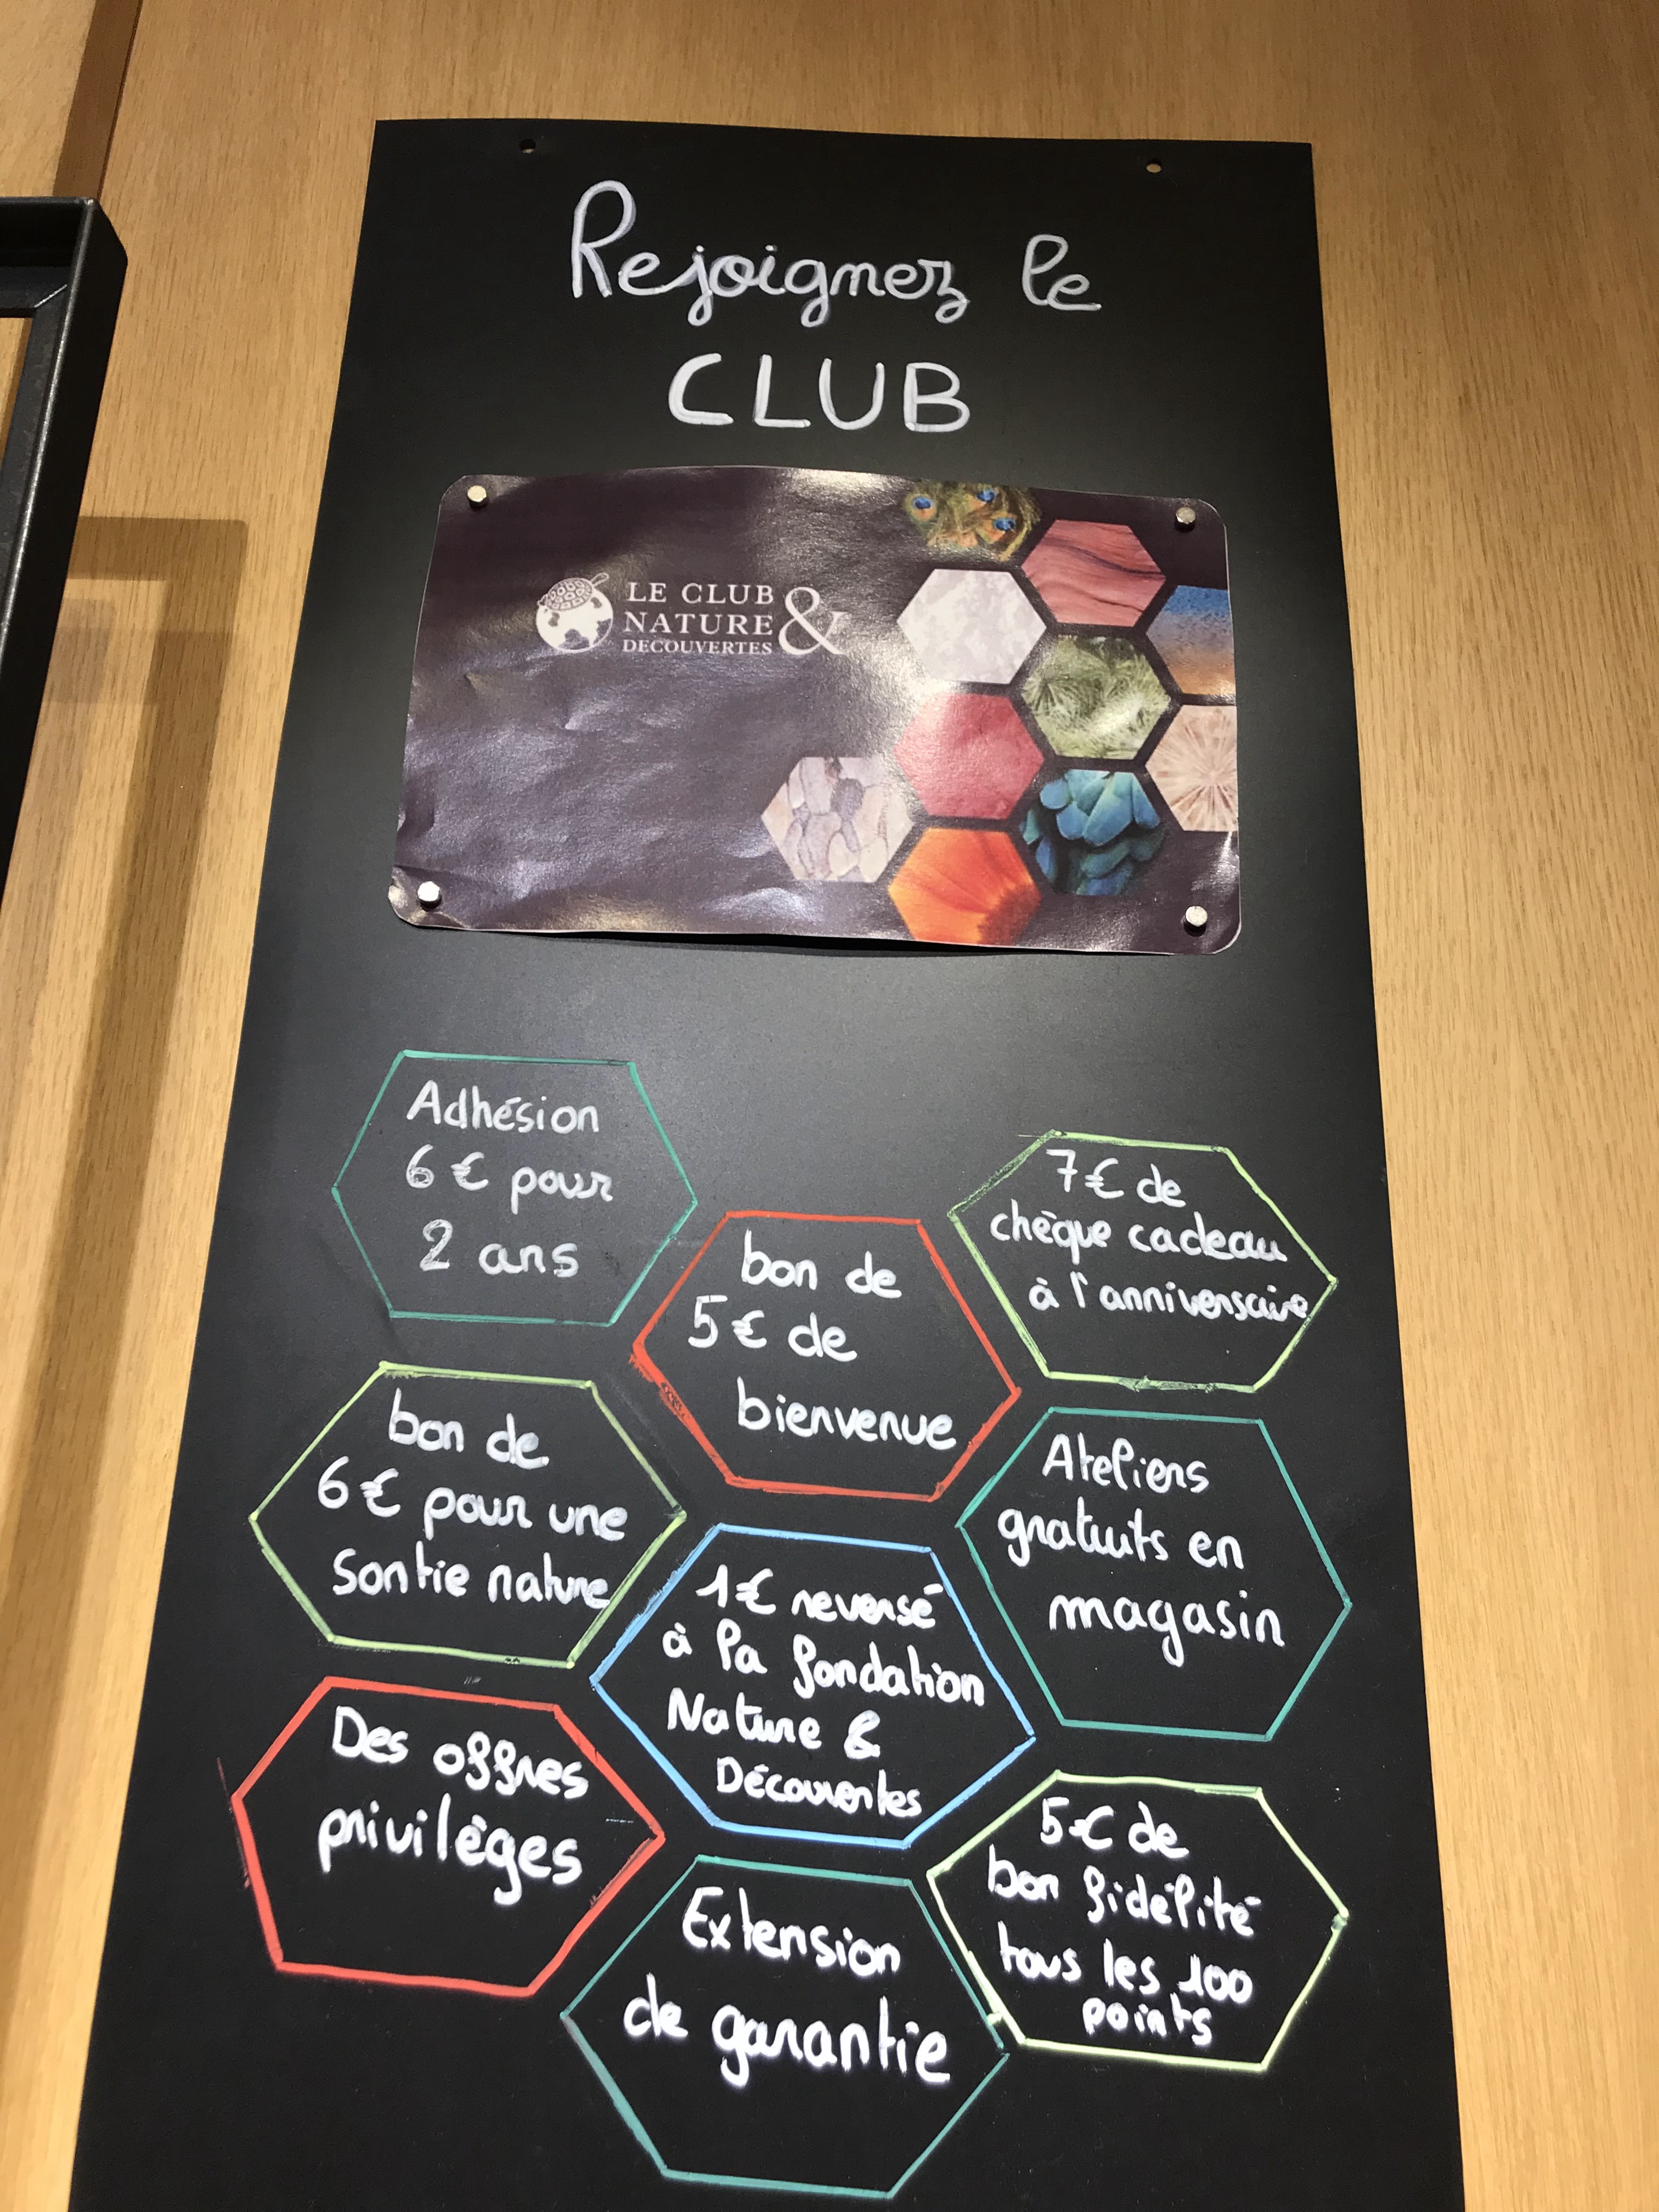 Rejoignez le
CLUB
LE CLUB
NATURE &
DECOUVERTES
Adhésion
6 € pour
2 ans
7€ de
chèque cadeau
à l'anniversaire
bon de
5€ de
bienvenue
bon de
6€ pour une
sortie nature
Ateliers
gratuits en
magasin
1€ reversé
à la fondation
Nature &
Découvertes
Des offres
privilèges
5€ de
bon fidélité
tous les 100
points
Extension
de garantie